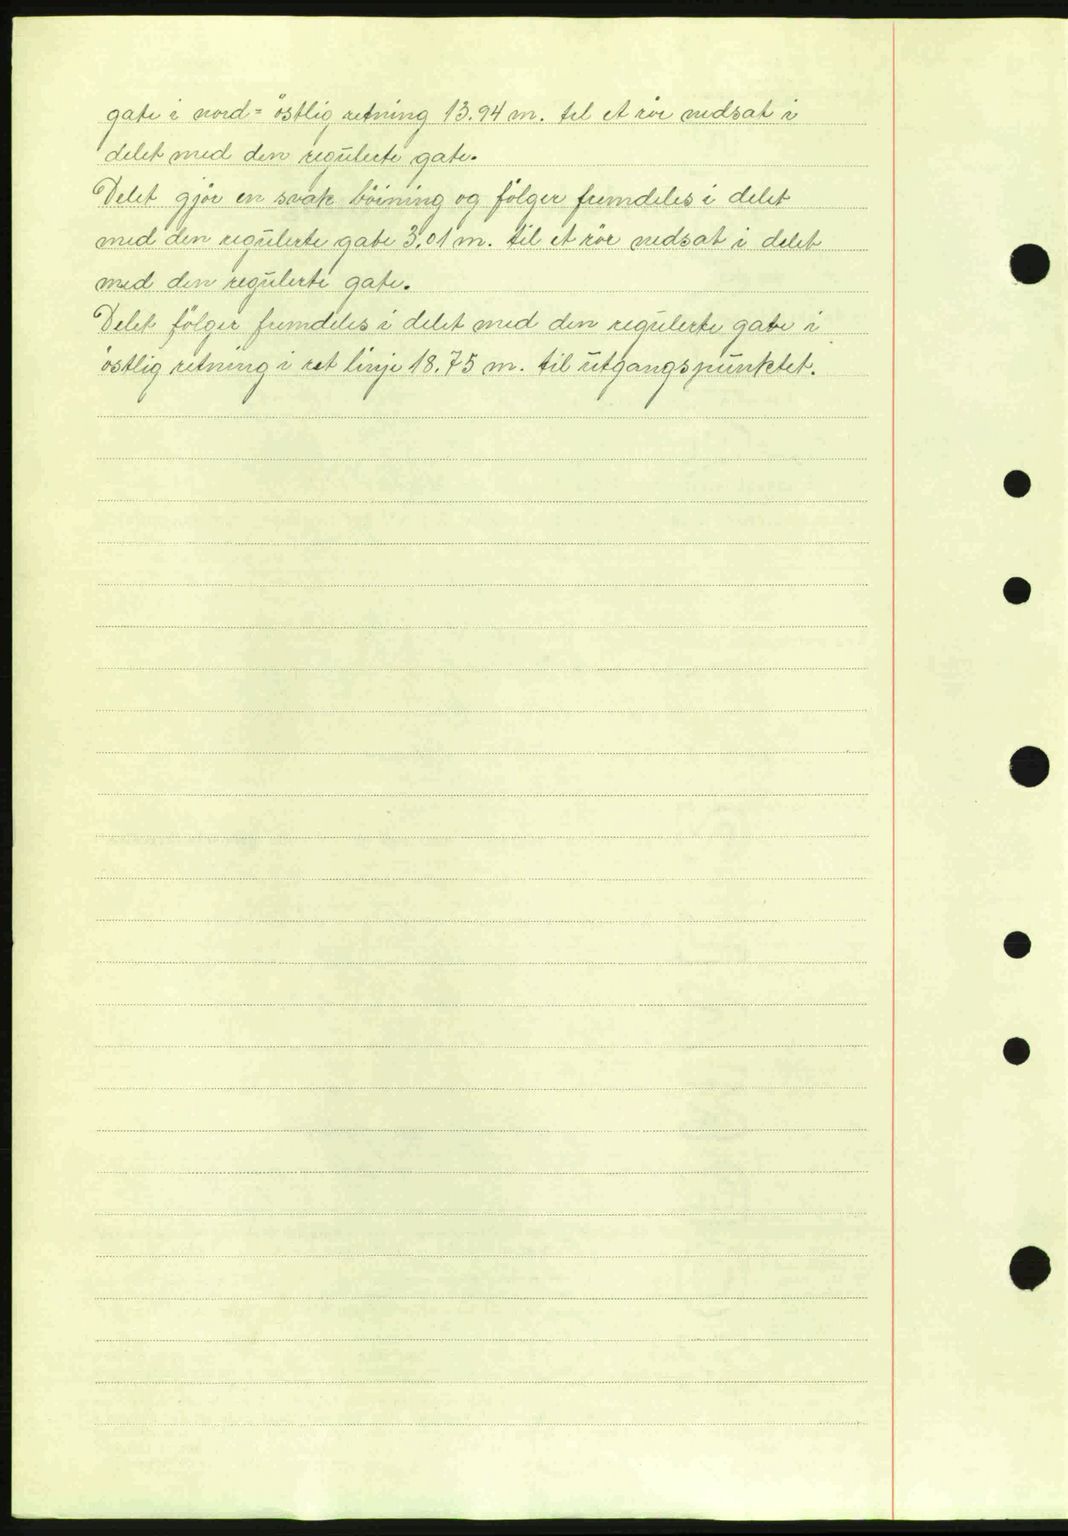 gate i nord= östlig retning 13.94 m. til et rör nedsat i
delet med den regulerte gate.
Delet gjör en svak böining og fölger fremdeles i delet
med den regulerte gate 3.01 m. til et rör nedsat i delet
med den regulerte gate.
Delet fölger fremdeles i delet med den regulerte gate i
östlig retning i ret linje 18.75 m. til utgangspunktet.